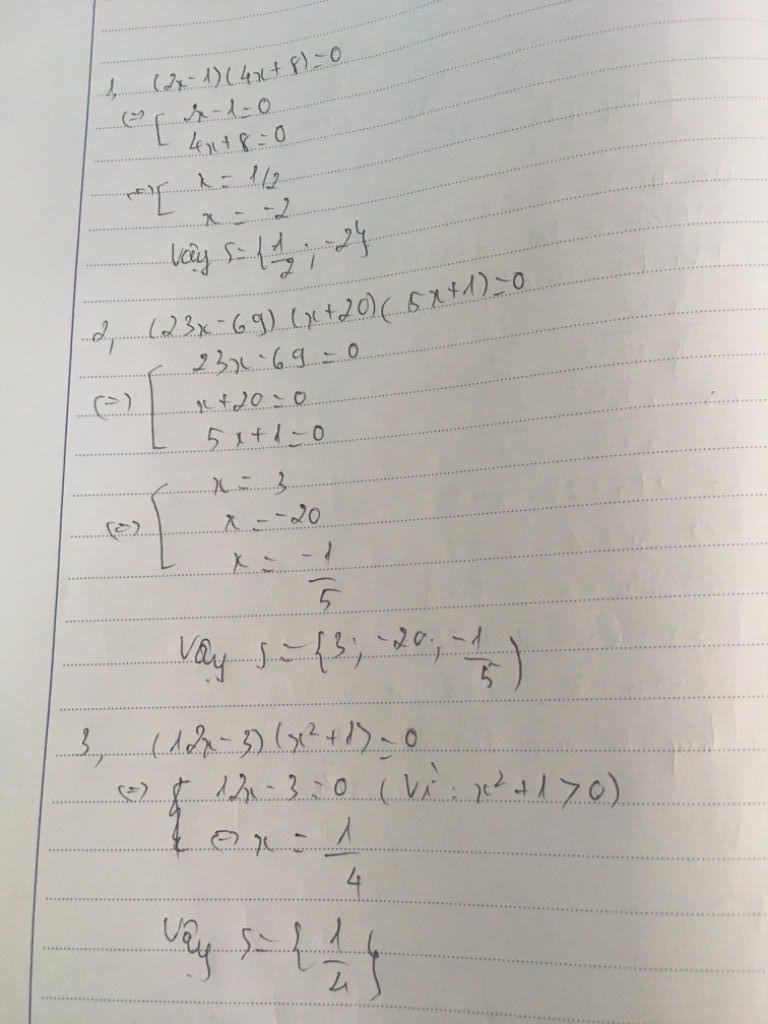 1, (2x-1)(4x+8)=0
(=) [ 2x-1=0
4x+8=0
(=) [ x = 1/2
x = -2
Vậy S={1/2; -2}
2, (23x-69)(x+20)(5x+1)=0
23x-69=0
(=) [ x+20=0
5x+1=0
x = 3
(=) [ x = -20
x = -1/5
Vậy S={3; -20; -1/5)
3, (12x-3)(x²+1)=0
(=) { 12x-3=0 (Vì: x²+1>0)
(=) x = 1/4
Vậy S={1/4}